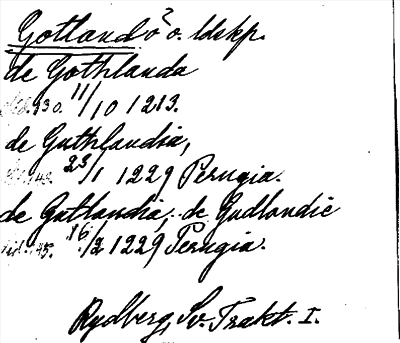 Gotland ö o. ldskp.
de Gothlanda
130. 11/10 1213.
de Guthlandia,
23/1 1229 Perugia.
de Gutlandia, de Gudlandie
145. 16/2 1229 Perugia.
Rydberg, Sv. Trakt. I.